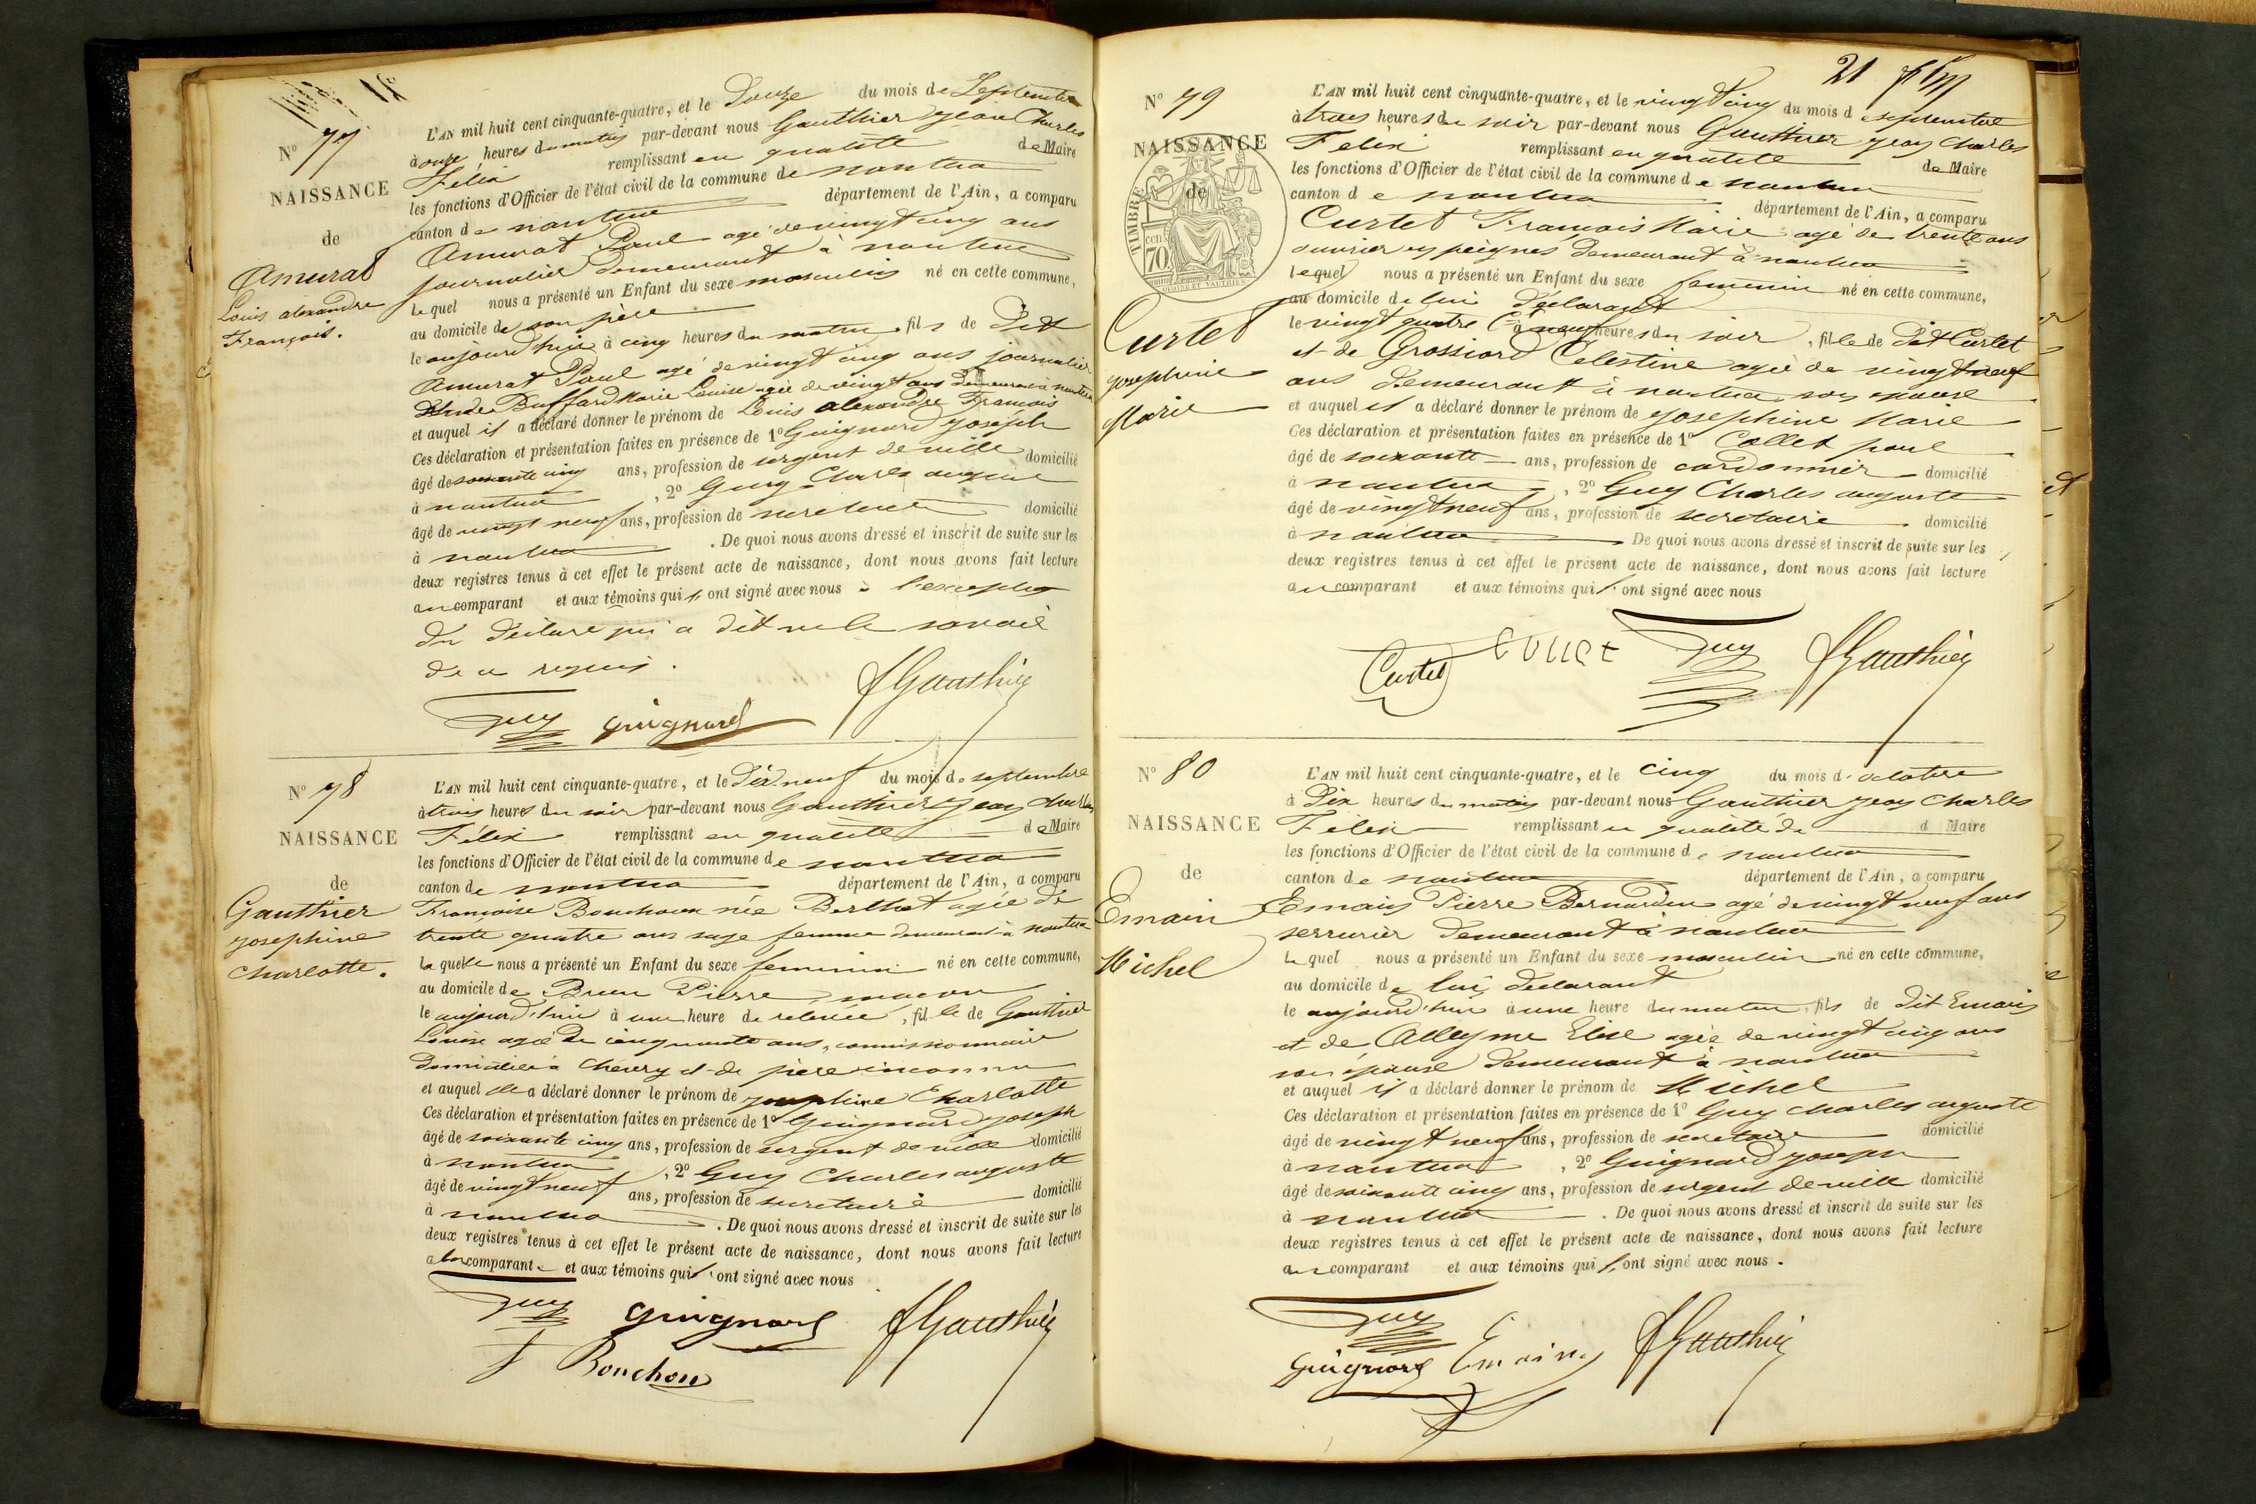 N° 77
NAISSANCE
de
Amurat
Louis alexandre
François.
L'AN mil huit cent cinquante-quatre, et le Douze du mois de Septembre
à onze heures du matin par-devant nous Gauthier Jean Charles
Félix remplissant en qualité de Maire
les fonctions d'Officier de l'état civil de la commune de nantua
canton de nantua département de l'Ain, a comparu
Amurat Paul agé de vingt cinq ans
journalier demeurant à nantua
lequel nous a présenté un Enfant du sexe masculin né en cette commune,
au domicile de son père
le aujourd'hui à cinq heures du matin, fils de Dit
Amurat Paul agé de vingt cinq ans journalier
et de Buffard Marie Louise agée de vingt ans demeurant à nantua
et auquel il a déclaré donner le prénom de Louis alexandre François
Ces déclaration et présentation faites en présence de 1° Guignard Joseph
âgé de soixante cinq ans, profession de sergent de ville domicilié
à nantua, 2° Guy Charles auguste
âgé de vingt neuf ans, profession de secretaire domicilié
à nantua. De quoi nous avons dressé et inscrit de suite sur les
deux registres tenus à cet effet le présent acte de naissance, dont nous avons fait lecture
au comparant et aux témoins qui ont signé avec nous à l'exception
du déclarant qui a dit ne le savoir
de ce requis.
Guy Guignard fGauthier
N° 78
NAISSANCE
de
Gauthier
Josephine
Charlotte.
L'AN mil huit cent cinquante-quatre, et le Dix neuf du mois de septembre
à trois heures du soir par-devant nous Gauthier Jean Charles
Félix remplissant en qualité de Maire
les fonctions d'Officier de l'état civil de la commune de nantua
canton de nantua département de l'Ain, a comparu
Françoise Bouchoux née Berthet agée de
trente quatre ans sage femme demeurant à nantua
laquelle nous a présenté un Enfant du sexe feminin né en cette commune,
au domicile de Brun Pierre, maçon
le aujourd'hui à une heure de relevée, fille de Gauthier
Louise agée de cinquante ans, commissionnaire
domiciliée à Chevry et de père inconnu
et auquel elle a déclaré donner le prénom de Josephine Charlotte
Ces déclaration et présentation faites en présence de 1° Guignard Joseph
âgé de soixante cinq ans, profession de sergent de ville domicilié
à nantua, 2° Guy Charles auguste
âgé de vingt neuf ans, profession de secretaire domicilié
à nantua. De quoi nous avons dressé et inscrit de suite sur les
deux registres tenus à cet effet le présent acte de naissance, dont nous avons fait lecture
a la comparante et aux témoins qui ont signé avec nous
Guy Guignard fGauthier
f Bouchoux
21
N° 79
NAISSANCE
de
TIMBRE
cen. 70
Curtet
Josephine
Marie
L'AN mil huit cent cinquante-quatre, et le vingt cinq du mois de septembre
à trois heures du soir par-devant nous Gauthier Jean Charles
Félix remplissant en qualité de Maire
les fonctions d'Officier de l'état civil de la commune de nantua
canton de nantua département de l'Ain, a comparu
Curtet François Marie agé de trente ans
ouvrier en peignes demeurant à nantua
lequel nous a présenté un Enfant du sexe feminin né en cette commune,
au domicile de lui déclarant
le vingt quatre Ct à neuf heures du soir, fille de Dit Curtet
et de Grossiord Celestine agée de vingt neuf
ans demeurant à nantua son epouse
et auquel il a déclaré donner le prénom de Josephine Marie
Ces déclaration et présentation faites en présence de 1° Collet paul
âgé de soixante ans, profession de cordonnier domicilié
à nantua, 2° Guy Charles auguste
âgé de vingt neuf ans, profession de secretaire domicilié
à nantua De quoi nous avons dressé et inscrit de suite sur les
deux registres tenus à cet effet le présent acte de naissance, dont nous avons fait lecture
au comparant et aux témoins qui ont signé avec nous
Curtet Collet Guy fGauthier
N° 80
NAISSANCE
de
Emain
Michel
L'AN mil huit cent cinquante-quatre, et le cinq du mois d'octobre
à Dix heures du matin par-devant nous Gauthier Jean Charles
Félix remplissant en qualité de d Maire
les fonctions d'Officier de l'état civil de la commune de nantua
canton de nantua département de l'Ain, a comparu
Emain Pierre Bernardin agé de vingt neuf ans
serrurier demeurant à nantua
lequel nous a présenté un Enfant du sexe masculin né en cette commune,
au domicile de lui, déclarant
le aujourd'hui à une heure du matin, fils de Dit Emain
et de Alleyme Elise agée de vingt cinq ans
son épouse demeurant à nantua
et auquel il a déclaré donner le prénom de Michel
Ces déclaration et présentation faites en présence de 1° Guy Charles auguste
âgé de vingt neuf ans, profession de secretaire domicilié
à nantua, 2° Guignard Joseph
âgé de soixante cinq ans, profession de sergent de ville domicilié
à nantua. De quoi nous avons dressé et inscrit de suite sur les
deux registres tenus à cet effet le présent acte de naissance, dont nous avons fait lecture
au comparant et aux témoins qui ont signé avec nous.
Guy
Guignard Emain fGauthier